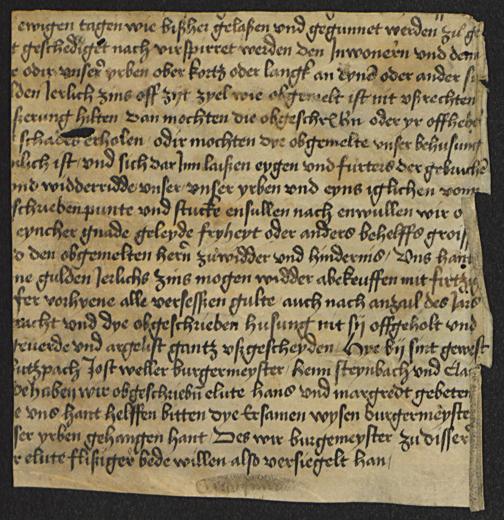 ewigen tagen wie bißher gelaßen und gegunnet werden zu ge
t geschediget nach virspirret werden den Inwonern und dem
e odir unser yrben ober kortz oder langk an eyne oder ander
den Jerlich zins off zijt zyel wie obgemelt ist nit ußrechten
sierung hilten dan mochten die obgeschr oder yr offheber
schades erholen odir mochten dye obgemelte unser behusung
nlich ist und sich dar Inn laißen eygen und furters der gebruchen
und widderridde unser unser yrben und eyns iglichen vom
schrieben punte und stucke ensullen nach enwullen wir o
eyncher gnade geleyde fryheyt oder anders behelffs groiß
o den obgemelten hern zuwidder und hindernis Uns hant
ne gulden Jerlichs zins mogen widder abekeuffen mit firtzig
fer vorhyene alle versessen gulte auch nach antzal des Jars
racht und dye obgeschrieben husung nit sij offgeholt und
geuerde und argelist gantz ußgescheyden Hye bij sint gewest
butzpach Jost weller burgermeyster Henn steynbach und Clas
de haben wir obgeschriebn elute hans und margredt gebeten
e uns hant helffen bitten dye Ersamen wysen burgermeyster
ser yrben gehangen hant Des wir burgemeyster zu disser
r elute flißiger bede willen also versiegelt han